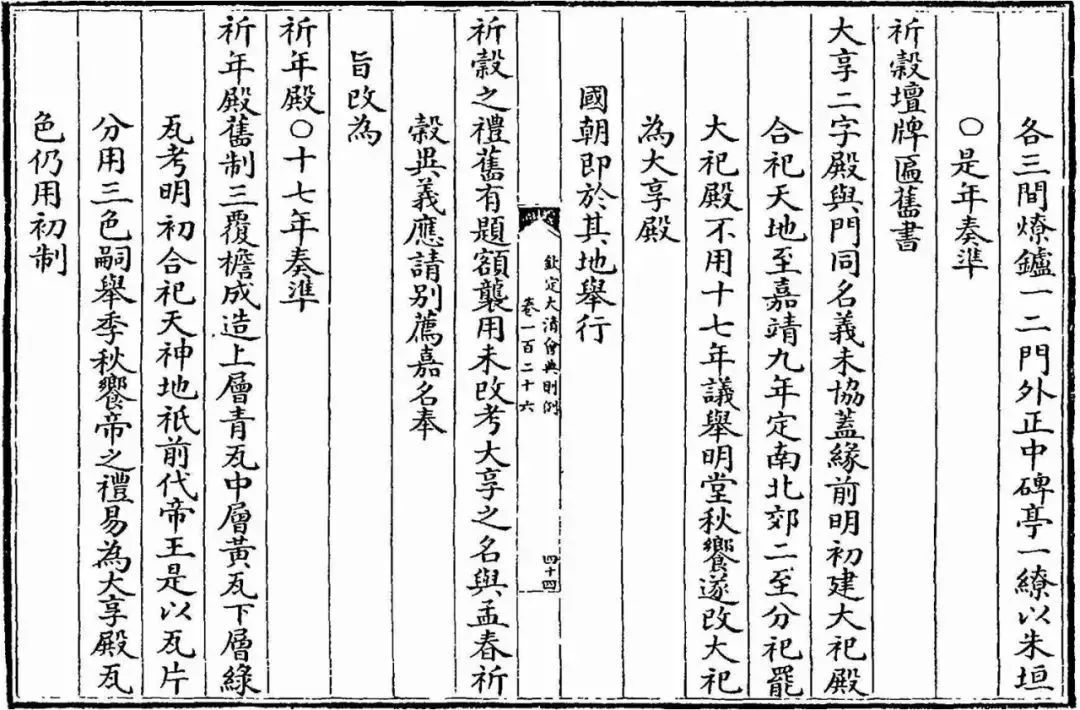 各三間燎鑪一二門外正中碑亭一繚以朱垣
〇是年奏準
祈穀壇牌匾舊書
大享二字殿與門同名義未協蓋緣前明初建大祀殿
合祀天地至嘉靖九年定南北郊二至分祀罷
大祀殿不用十七年議舉明堂秋饗遂改大祀
為大享殿
國朝即於其地舉行
欽定大清會典則例
卷一百二十六
四十四
祈穀之禮舊有題額襲用未改考大享之名與孟春祈
穀異義應請別薦嘉名奉
旨改為
祈年殿〇十七年奏準
祈年殿舊制三覆檐成造上層青瓦中層黃瓦下層綠
瓦考明初合祀天神地祇前代帝王是以瓦片
分用三色嗣舉季秋饗帝之禮易為大享殿瓦
色仍用初制